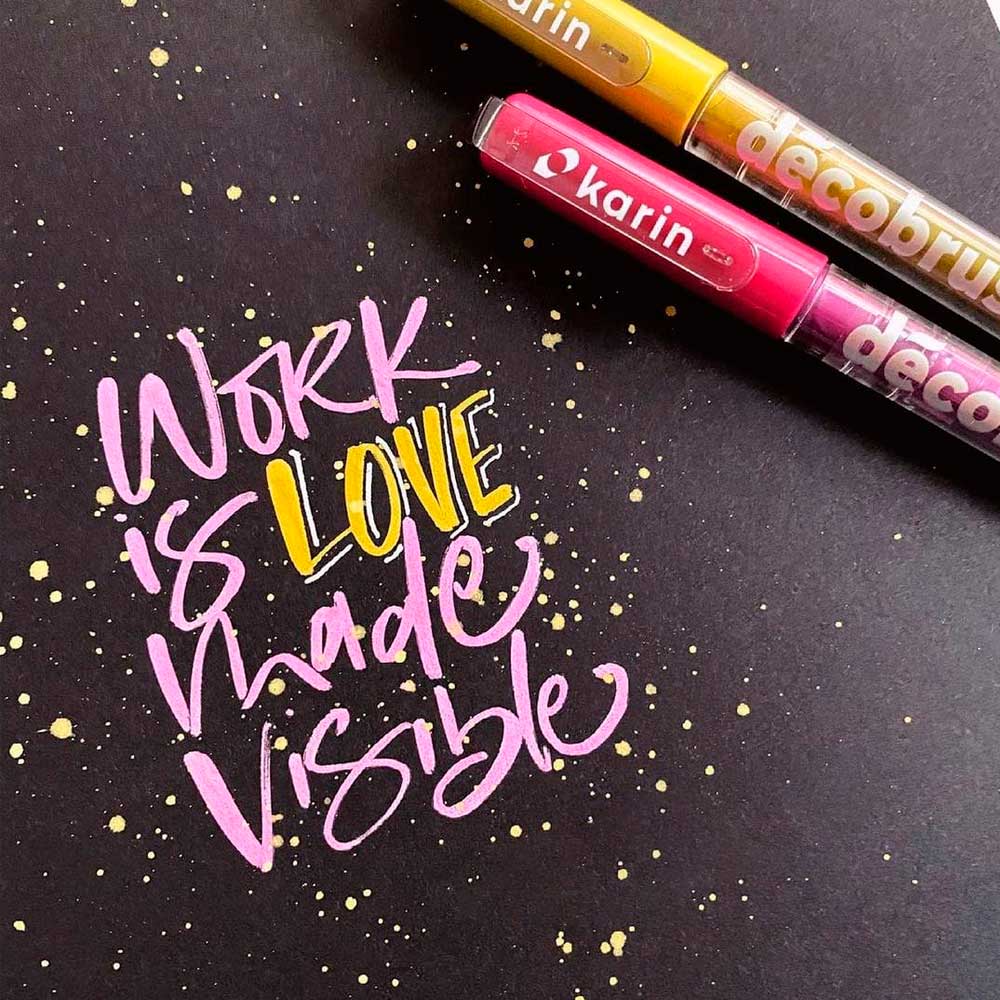 karin
decobrus
karin
deco
Work
is LOVE
made
visible